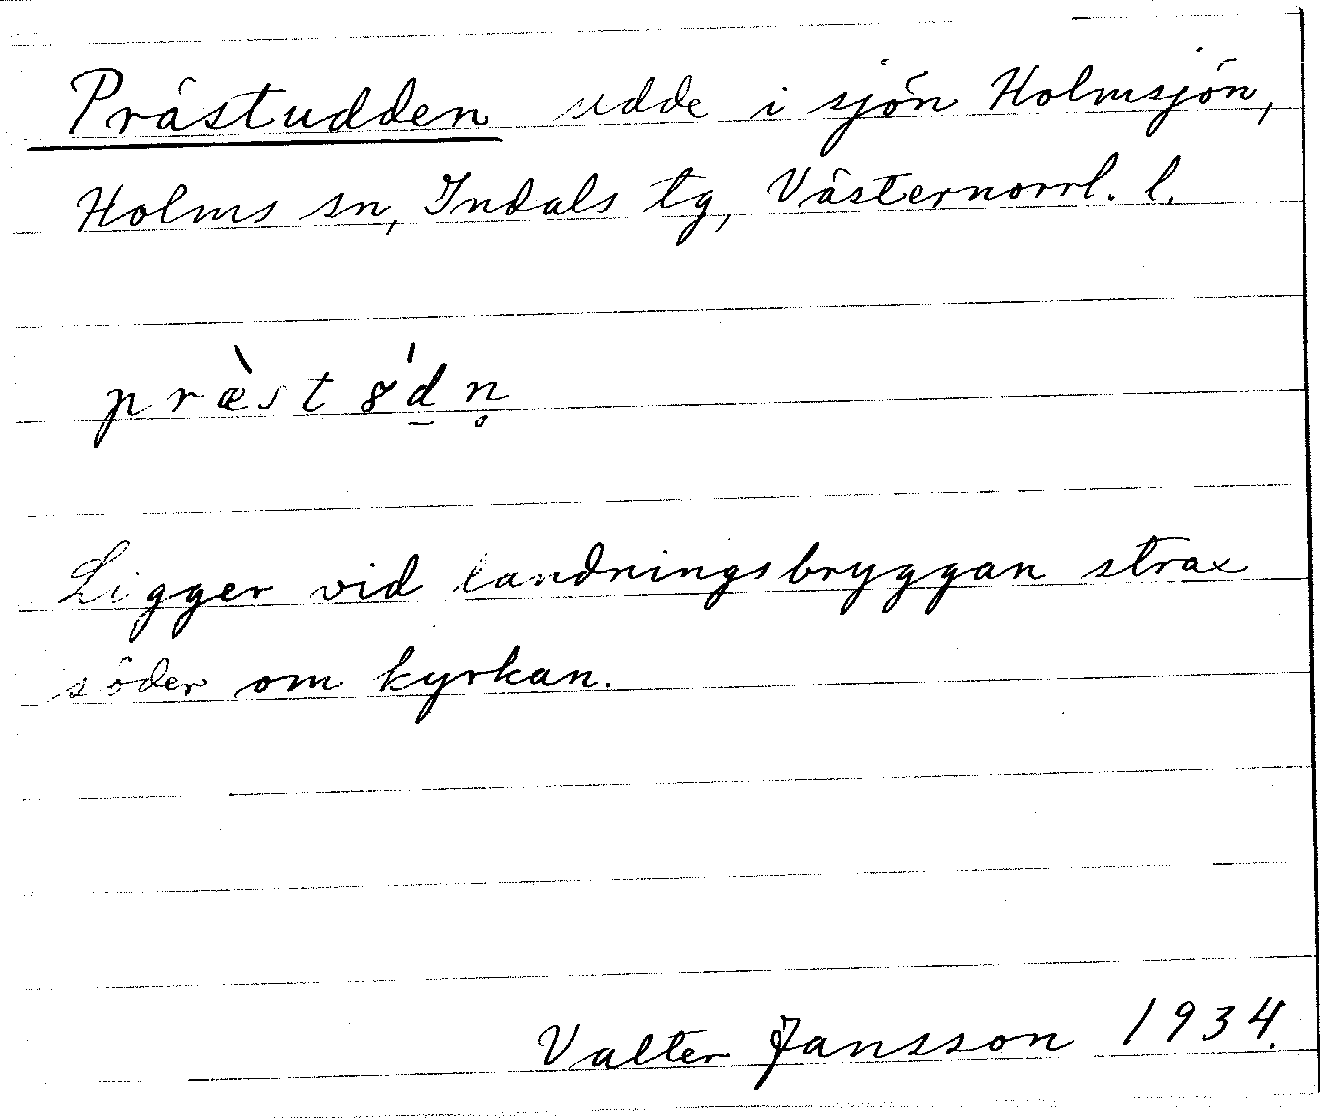 Prästudden udde i sjön Holmsjön,
Holms sn, Indals tg, Västernorrl. l.
præ̀st8́d̲n̥
Ligger vid landningsbryggan strax
söder om kyrkan.
Valter Jansson 1934.